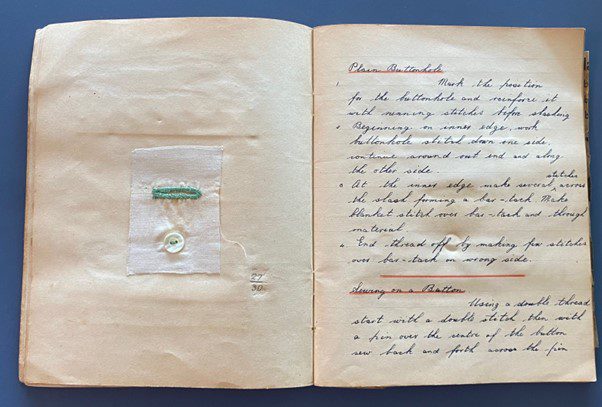 27
30
Plain Buttonhole
1. Mark the position
for the buttonhole and reinforce it
with running stitches before slashing
2. Beginning on inner edge, work
buttonhole stitch down one side,
continue around out end and along
the other side.
3. At the inner edge make several stitches across
the slash forming a bar-tack. Make
blanket stitch over bar-tack and through
material
4. End thread off by making few stitches
over bar-tack on wrong side.
Sewing on a Button
Using a double thread
start with a double stitch then with
a pin over the centre of the button
sew back and forth across the pin